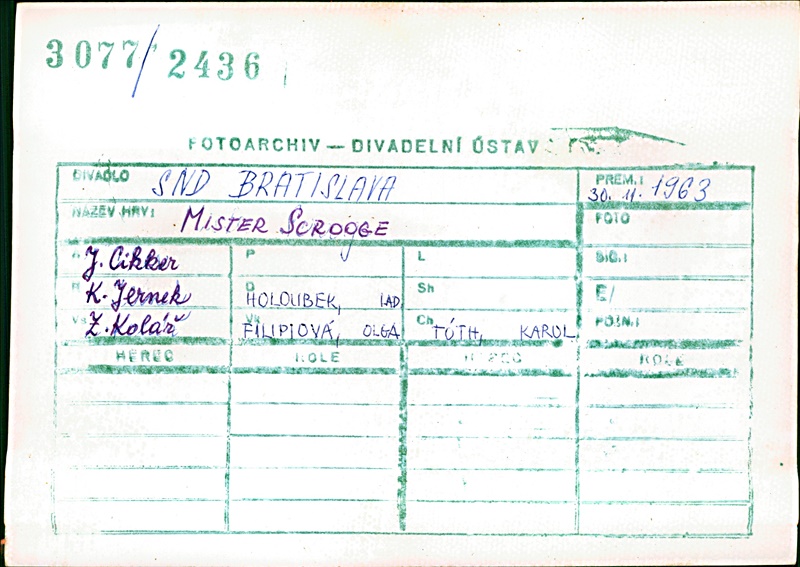 3077/2436
FOTOARCHIV — DIVADELNÍ ÚSTAV
DIVADLO SND BRATISLAVA PREM.: 30. 11. 1963
NÁZEV HRY: MISTER SCROOGE FOTO
J. Cikker P L SIG.:
K. Jernek HOLOUBEK, LAD. Sh E/
Z. Kolář FILIPIOVÁ, OLGA Ch TÓTH, KAROL POZN.:
HEREC ROLE HEREC ROLE